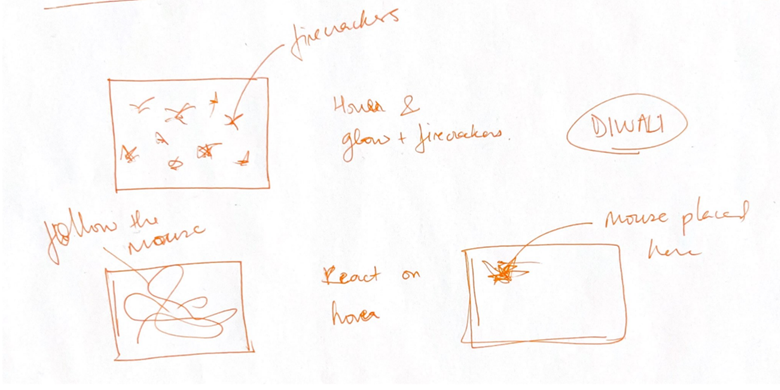 firecrackers
Hover &
glow + firecrackers.
DIWALI
follow the
mouse
React on
hover
mouse placed
here